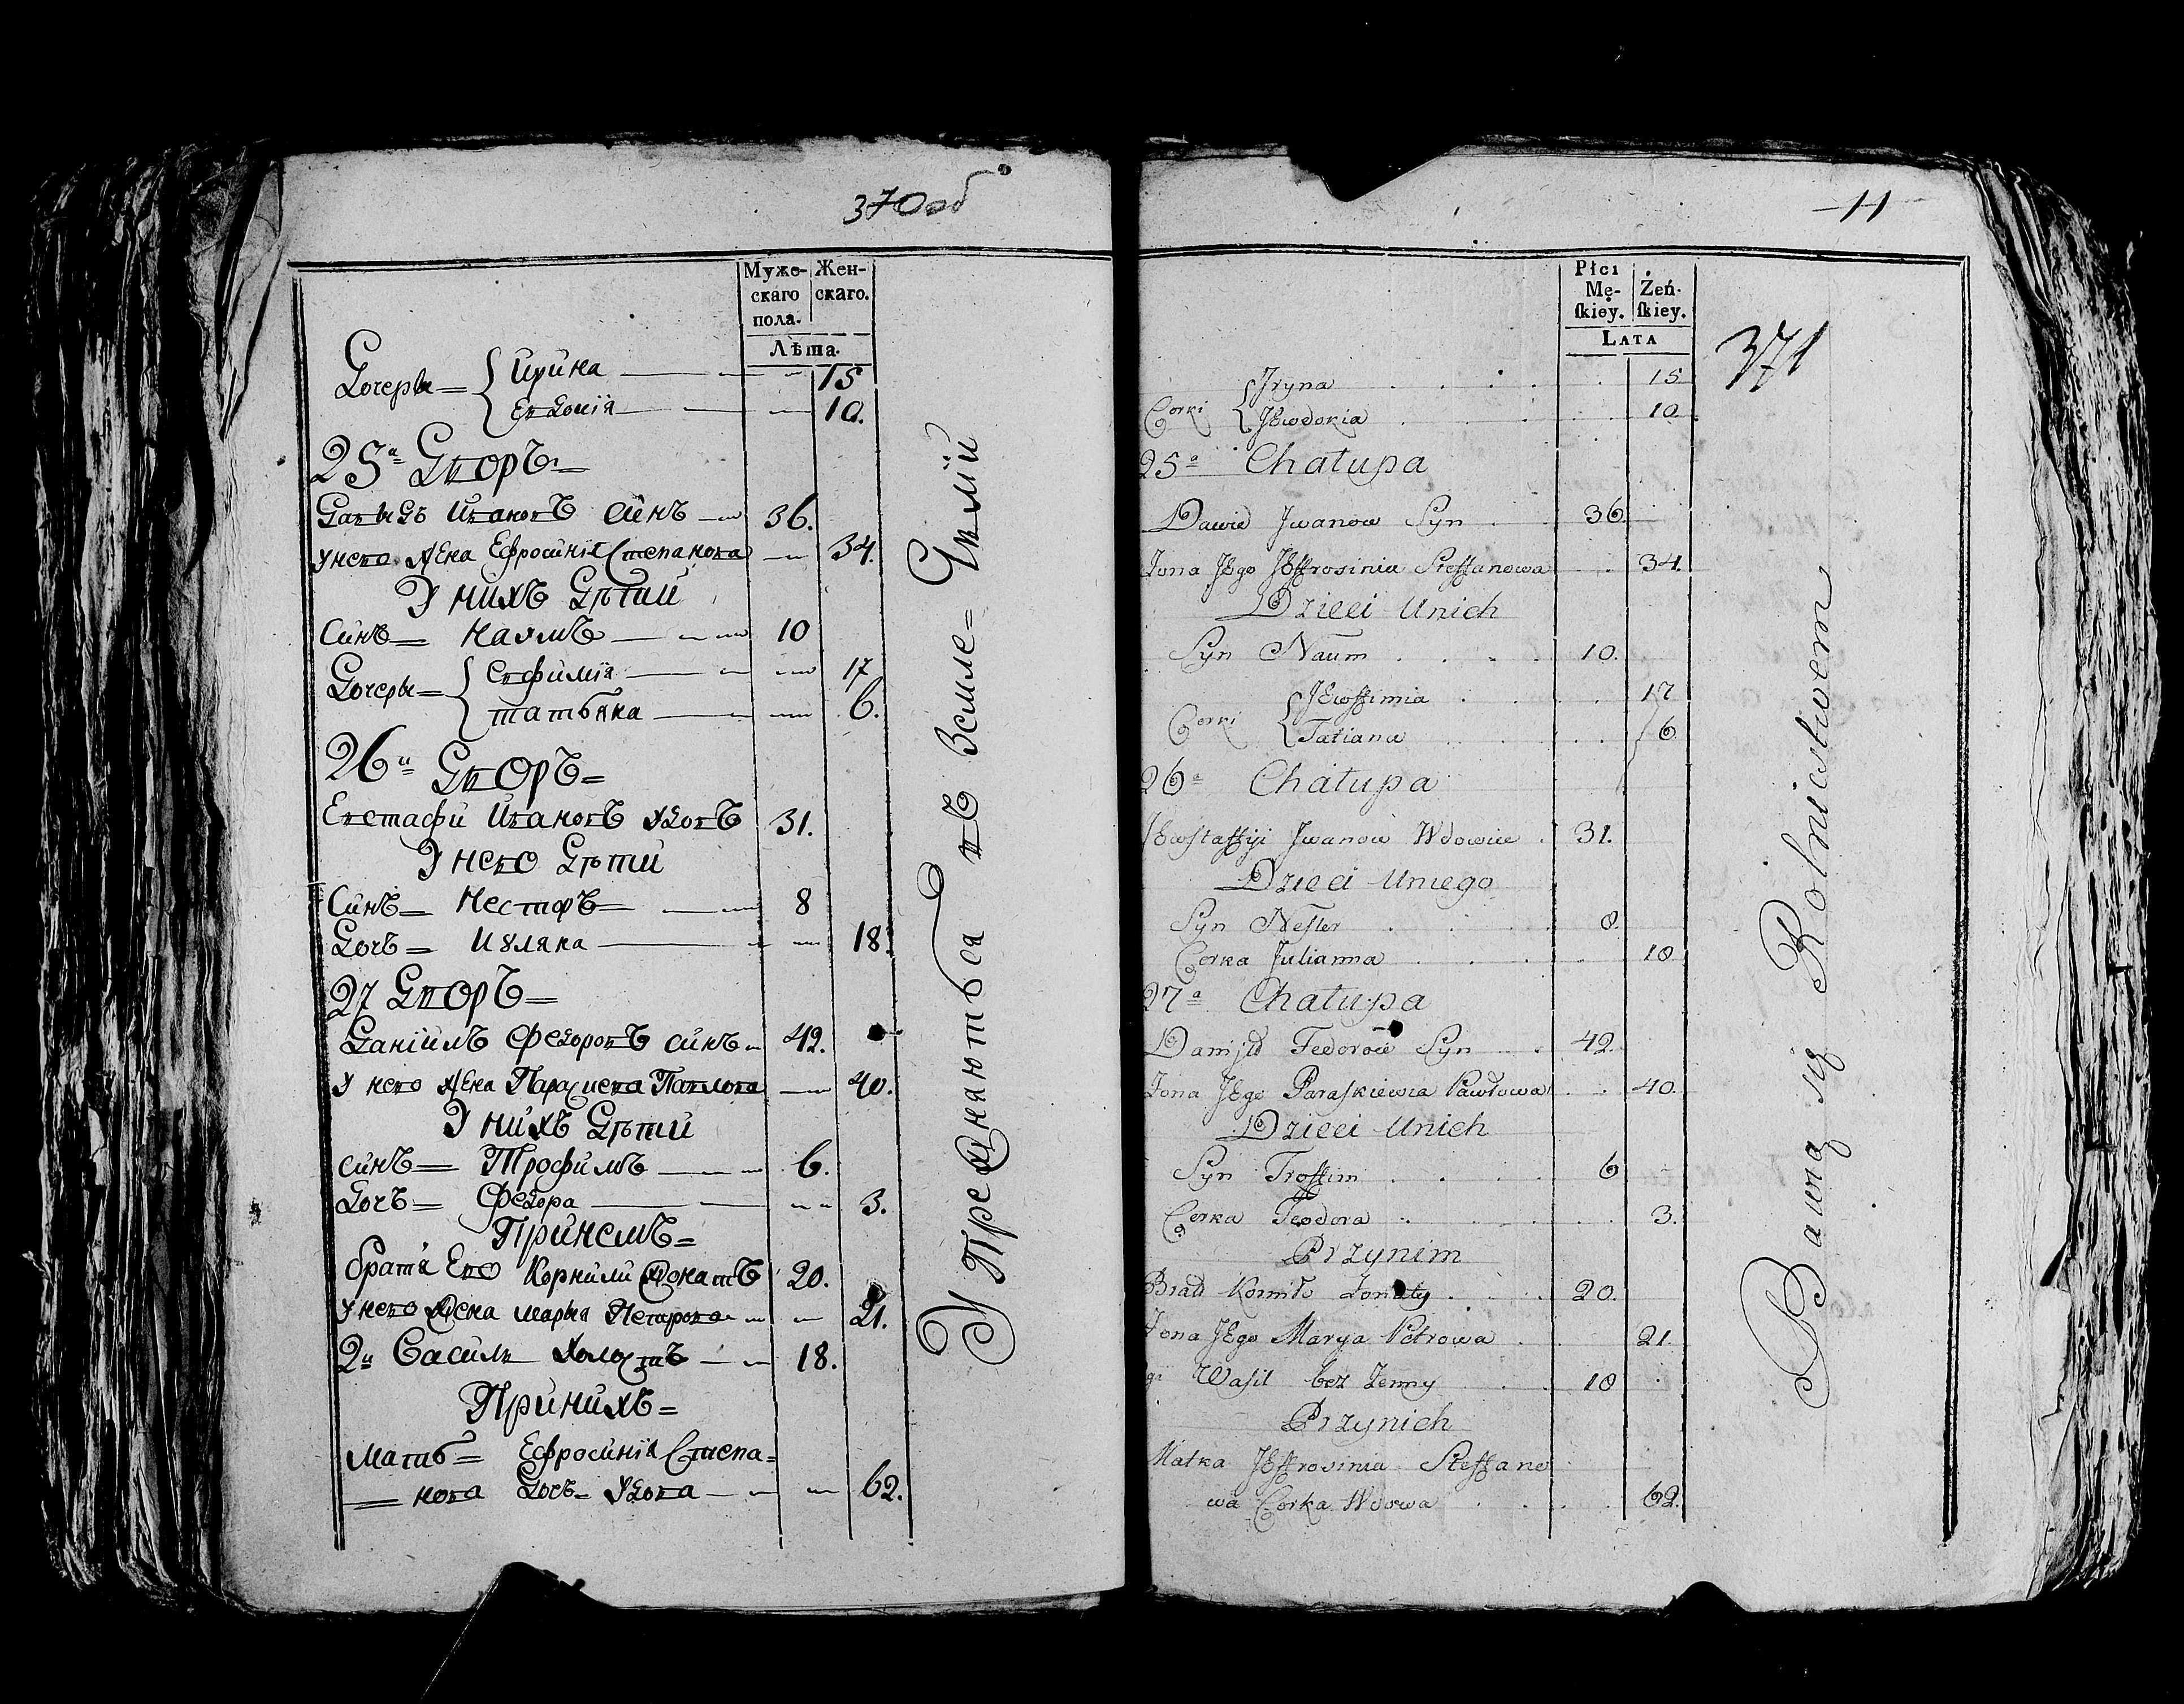 370 об
Мужескаго пола.
Женскаго.
Лѣта.
Дочеры = Ирина 15
Евдокія 10.
25а Дворъ =
Давыдъ Ивановъ синъ 36.
У него Жена Ефросинія Степанова 34.
У нихъ Дѣти
Синъ = Наумъ 10
Дочеры = Евфимія 17
татьяна 6.
26й Дворъ =
Евстафи Ивановъ Удовъ 31.
У него Дѣти
Синъ = Несторъ 8
Дочъ = Иуляна 18
27 Дворъ =
Даніилъ Федоровъ синъ 42.
У него Жена Параскева Павлова 40.
У нихъ Дѣти
синъ = Трофимъ 6.
Дочъ = Федора 3.
При немъ =
братя Его Корнили Жонатъ 20.
У него Жена марыя Петрова 21.
2й Василь Холостъ 18.
При нихъ =
Мать = Ефросинія Степа=
= нова Дочъ = Удова 62.
Упрежняються въ Земле=Дѣлій
11
371
Płci Męskiey.
Żeńskiey.
LATA
Corki Jryna 15
JEwdokia 10
25a Chałupa
Dawid Jwanow Syn 36
Żona JEgo JEffrosinia Steffanowa 34.
Dzieci Unich
Syn Naum 10.
Corki JEwffimia 17
Tatiana 6
26a Chałupa
JEwstaffiji Jwanow Wdowiec 31.
Dzieci Uniego
Syn Nester 8.
Corka Julianna 18
27a Chałupa
Daniił Fedorow Syn 42.
Żona JEgo Paraskiewia Pawłowa 40.
Dzieci Unich
Syn Troffim 6
Corka Teodora 3.
Przynim
Brad Korniło Żonaty 20.
Żona JEgo Marya Petrowa 21.
2gi Wasil bez Żenny 18
Przynich
Matka JEffrosinia Steffano
wa Corka Wdowa 62.
Bawią się Rolnictwem